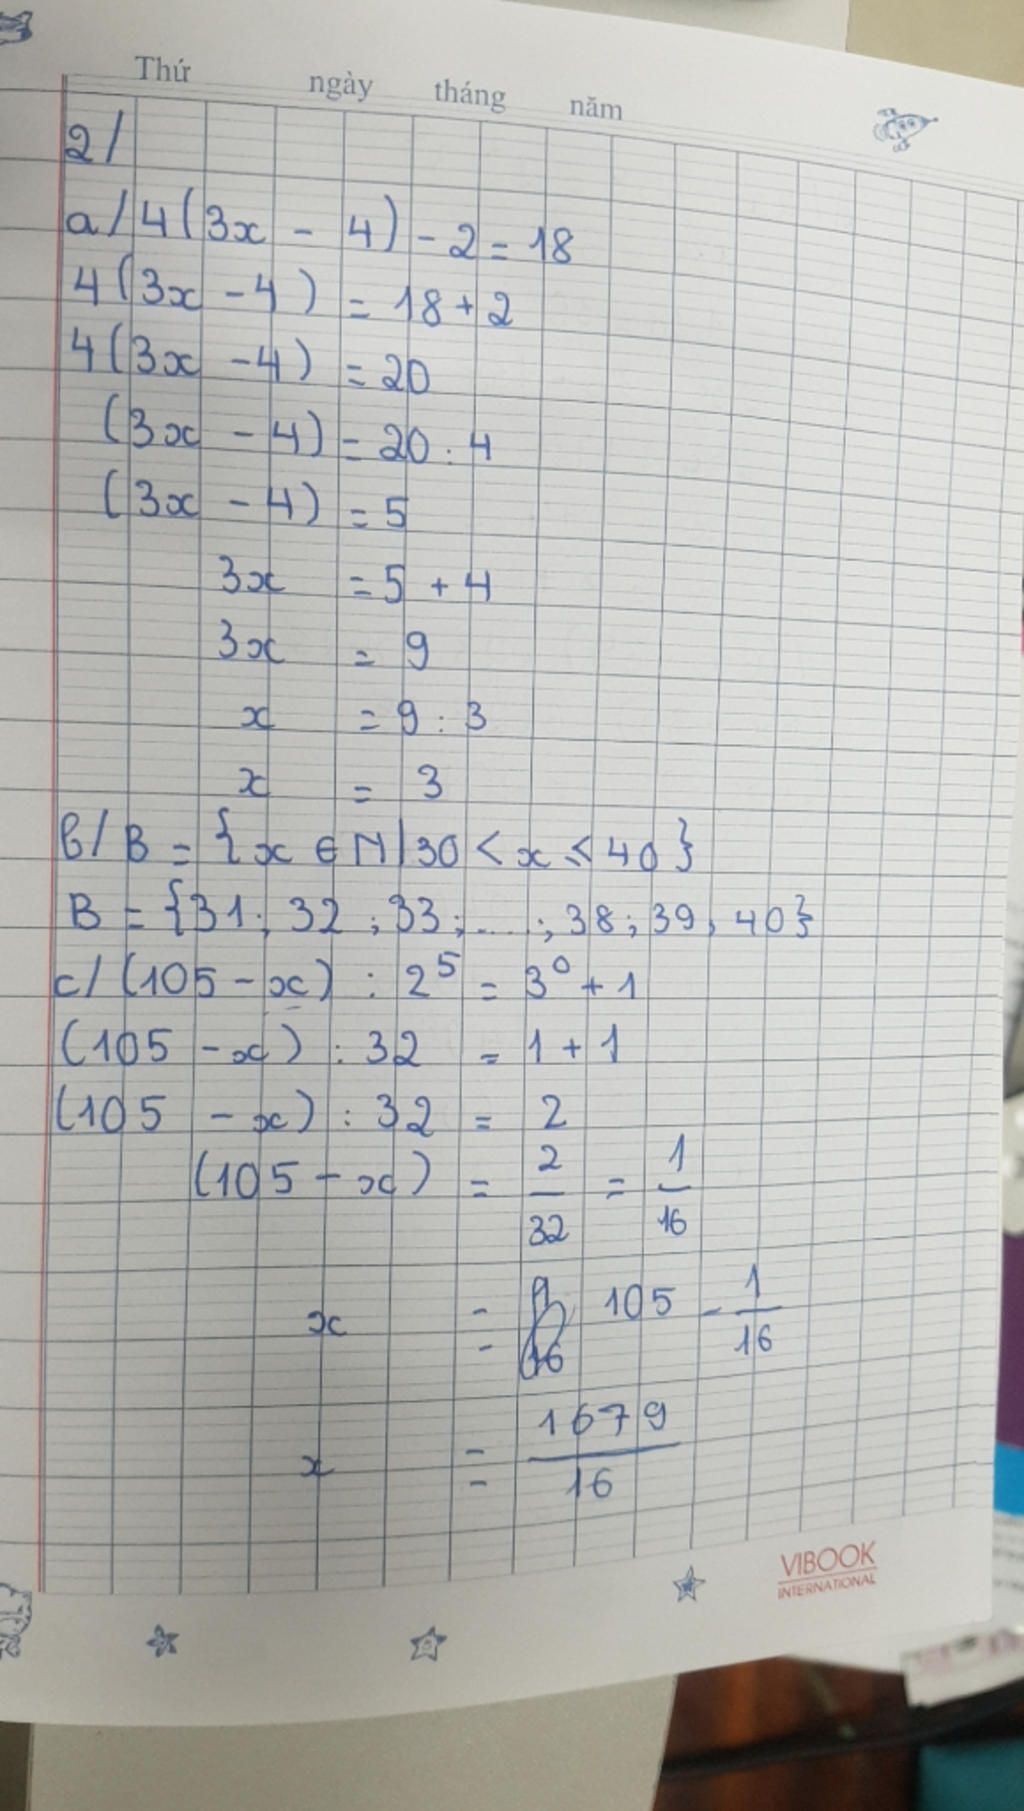 Thứ ngày tháng năm
2/
a/ 4(3x - 4) - 2 = 18
4(3x - 4) = 18 + 2
4(3x - 4) = 20
(3x - 4) = 20 : 4
(3x - 4) = 5
3x = 5 + 4
3x = 9
x = 9 : 3
x = 3
b/ B = {x ∈ N | 30 < x ≤ 40}
B = {31; 32; 33; ....; 38; 39; 40}
c/ (105 - x) : 2⁵ = 3⁰ + 1
(105 - x) : 32 = 1 + 1
(105 - x) : 32 = 2
(105 - x) = 2/32 = 1/16
x = 105 - 1/16
x = 1679/16
VIBOOK
INTERNATIONAL